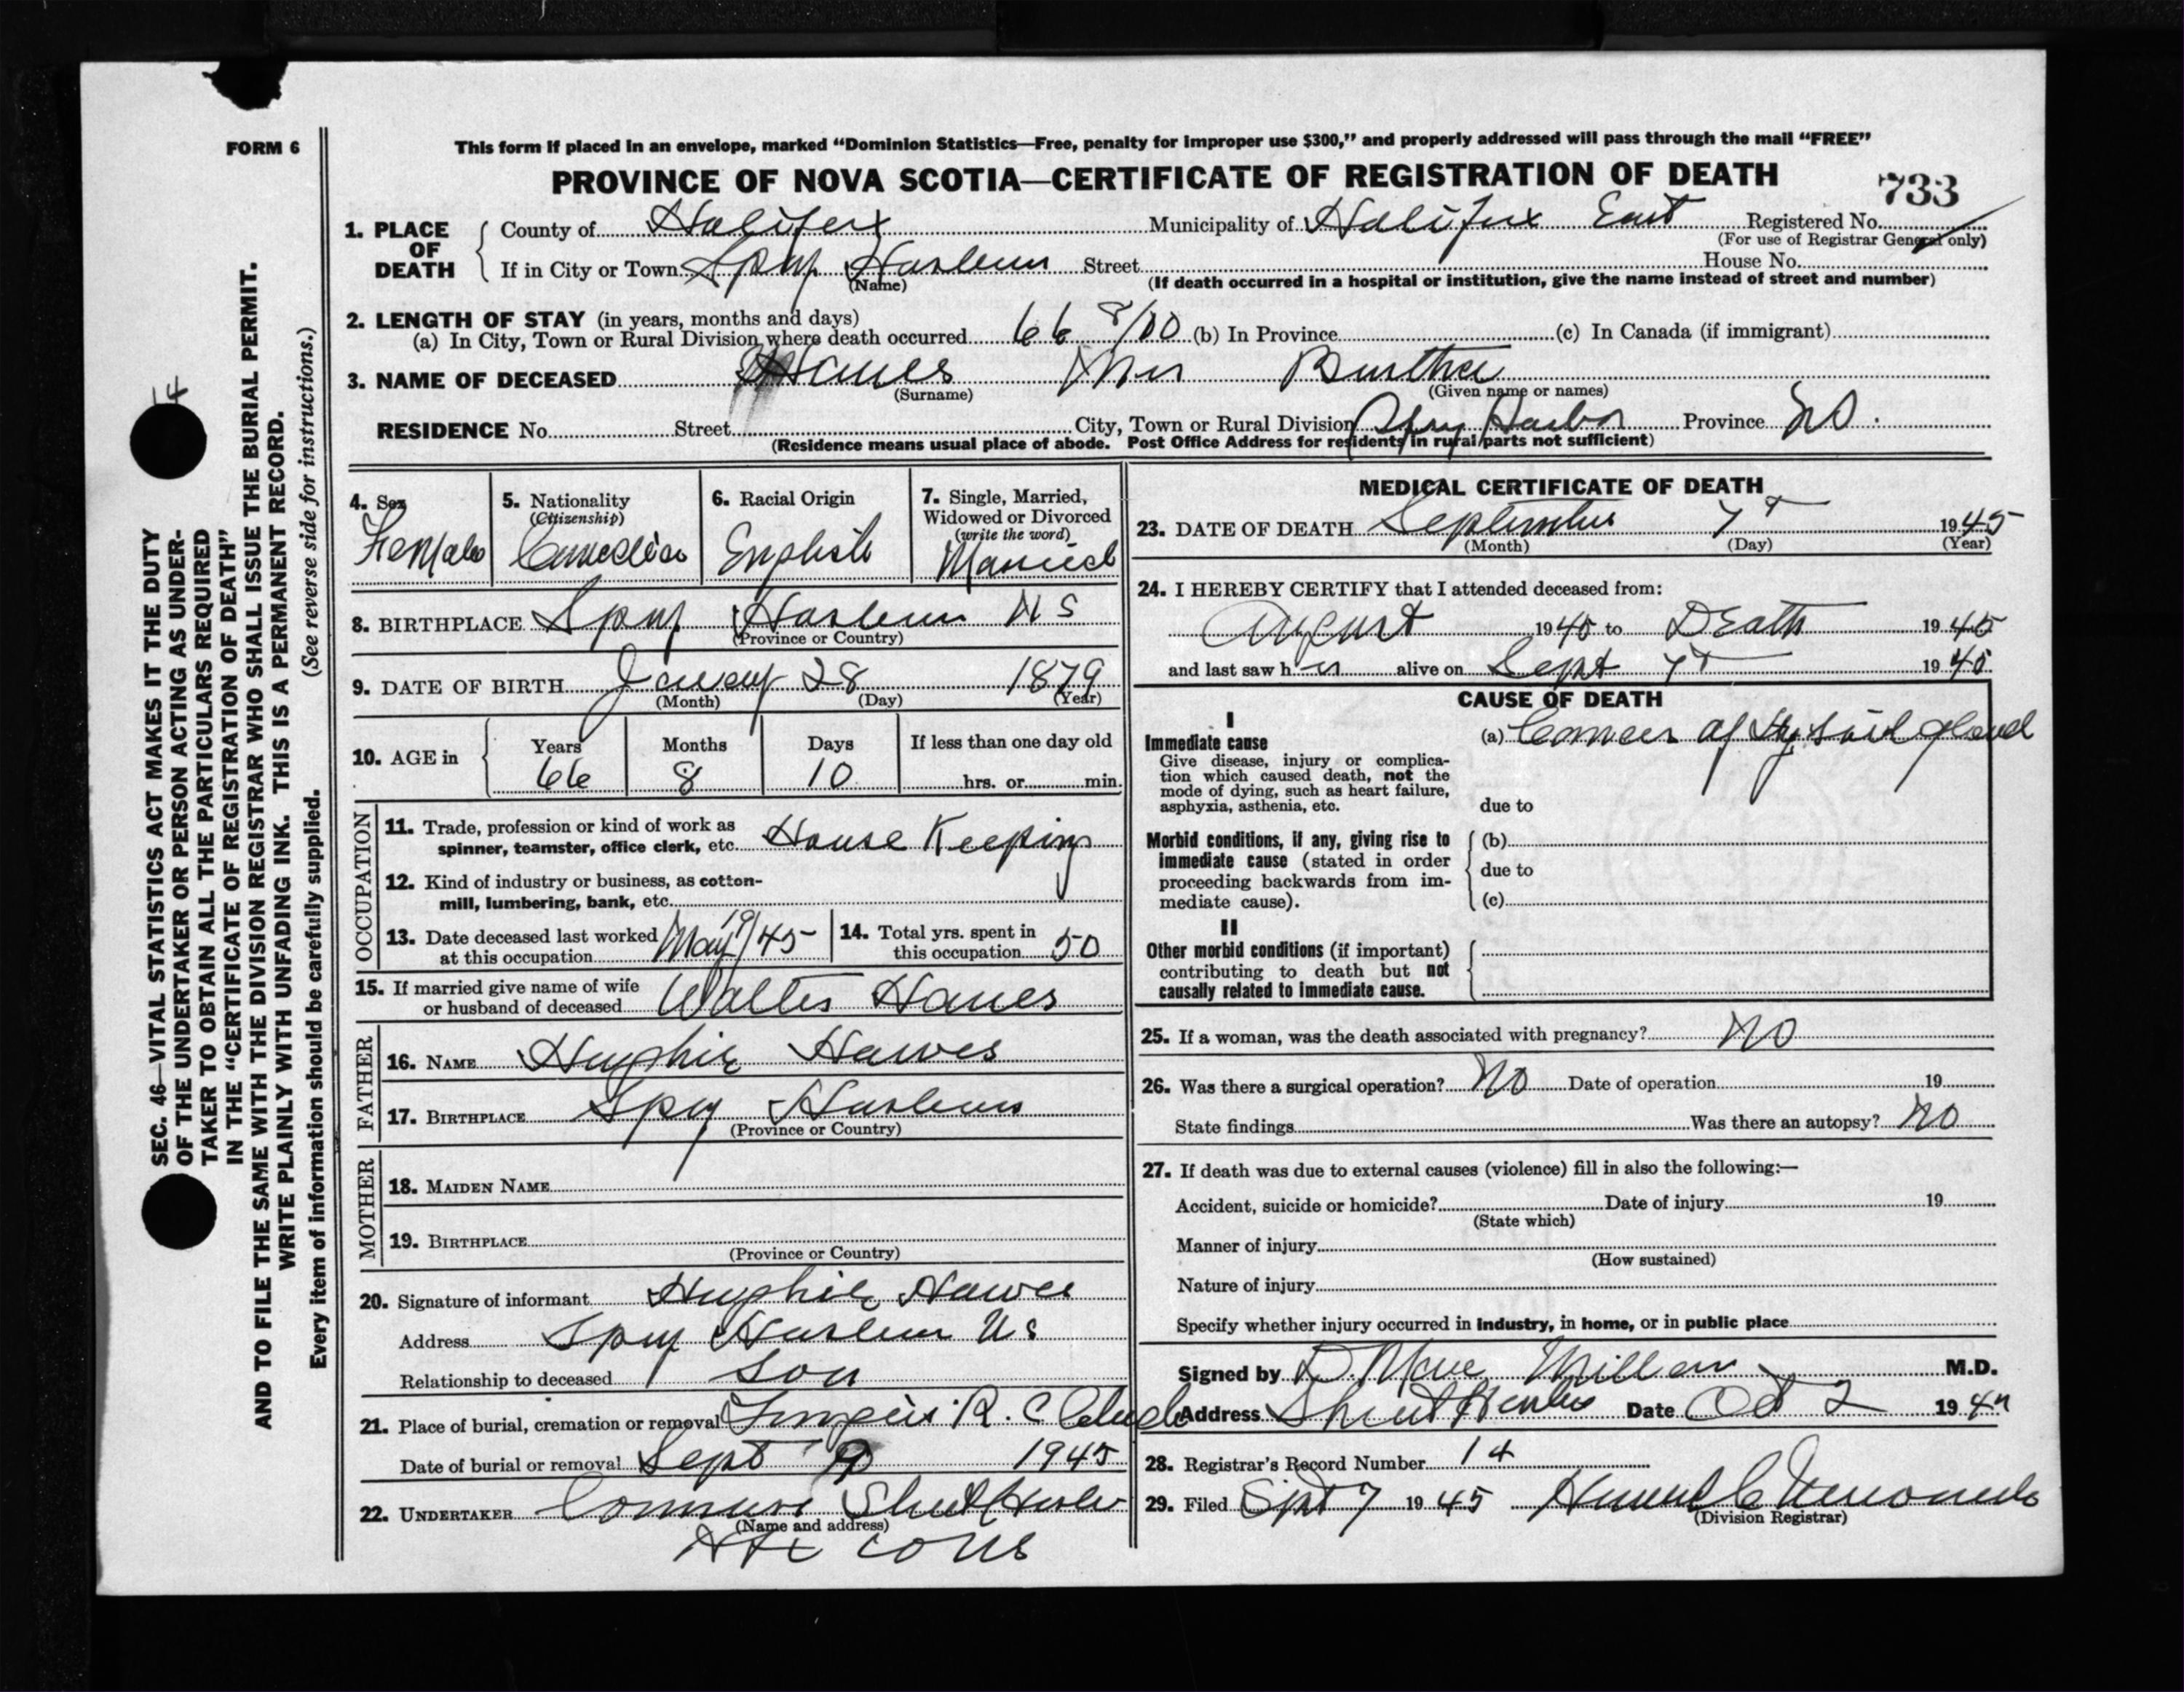 FORM 6
This form if placed in an envelope, marked “Dominion Statistics—Free, penalty for improper use $300,” and properly addressed will pass through the mail “FREE”
PROVINCE OF NOVA SCOTIA—CERTIFICATE OF REGISTRATION OF DEATH
733
1. PLACE OF DEATH
County of Halifax Municipality of Halifax East Registered No.
(For use of Registrar General only)
If in City or Town Spry Harbour Street House No.
(Name) (If death occurred in a hospital or institution, give the name instead of street and number)
2. LENGTH OF STAY (in years, months and days)
(a) In City, Town or Rural Division where death occurred 66 8/10 (b) In Province (c) In Canada (if immigrant)
3. NAME OF DECEASED Hawes Mrs Burtha
(Surname) (Given name or names)
RESIDENCE No. Street City, Town or Rural Division Spry Harbor Province NS.
(Residence means usual place of abode. Post Office Address for residents in rural parts not sufficient)
4. Sex Female
5. Nationality (Citizenship) Canadian
6. Racial Origin English
7. Single, Married, Widowed or Divorced (write the word) Married
8. BIRTHPLACE Spry Harbour N S
(Province or Country)
9. DATE OF BIRTH January 28 1879
(Month) (Day) (Year)
10. AGE in Years 66 Months 8 Days 10 If less than one day old hrs. or min.
OCCUPATION
11. Trade, profession or kind of work as spinner, teamster, office clerk, etc. House Keeping
12. Kind of industry or business, as cotton-mill, lumbering, bank, etc.
13. Date deceased last worked at this occupation May 19/45
14. Total yrs. spent in this occupation 50
15. If married give name of wife or husband of deceased Walter Hawes
FATHER
16. NAME Hughie Hawes
17. BIRTHPLACE Spry Harbour
(Province or Country)
MOTHER
18. MAIDEN NAME
19. BIRTHPLACE
(Province or Country)
20. Signature of informant Hughie Hawes
Address Spry Harbour N S
Relationship to deceased Son
21. Place of burial, cremation or removal R. C
Date of burial or removal Sept 9 1945
22. UNDERTAKER Sheet Harbor
(Name and address)
Hfx Co NS
MEDICAL CERTIFICATE OF DEATH
23. DATE OF DEATH September 7 1945
(Month) (Day) (Year)
24. I HEREBY CERTIFY that I attended deceased from:
August 1945 to Death 1945
and last saw her alive on Sept 7 1945
CAUSE OF DEATH
I
Immediate cause
Give disease, injury or complication which caused death, not the mode of dying, such as heart failure, asphyxia, asthenia, etc.
(a) Cancer of thyroid gland
due to
Morbid conditions, if any, giving rise to immediate cause (stated in order proceeding backwards from immediate cause).
(b)
due to
(c)
II
Other morbid conditions (if important) contributing to death but not causally related to immediate cause.
25. If a woman, was the death associated with pregnancy? NO
26. Was there a surgical operation? NO Date of operation 19
State findings Was there an autopsy? NO
27. If death was due to external causes (violence) fill in also the following:—
Accident, suicide or homicide? Date of injury 19
(State which)
Manner of injury
(How sustained)
Nature of injury
Specify whether injury occurred in industry, in home, or in public place
Signed by D. Mac Millan M.D.
Address Sheet Harbor Date Oct 2 194
28. Registrar's Record Number 14
29. Filed Sept 7 1945
(Division Registrar)
14
SEC. 46—VITAL STATISTICS ACT MAKES IT THE DUTY
OF THE UNDERTAKER OR PERSON ACTING AS UNDER-
TAKER TO OBTAIN ALL THE PARTICULARS REQUIRED
IN THE “CERTIFICATE OF REGISTRATION OF DEATH”
AND TO FILE THE SAME WITH THE DIVISION REGISTRAR WHO SHALL ISSUE THE BURIAL PERMIT.
WRITE PLAINLY WITH UNFADING INK. THIS IS A PERMANENT RECORD.
Every item of information should be carefully supplied. (See reverse side for instructions.)